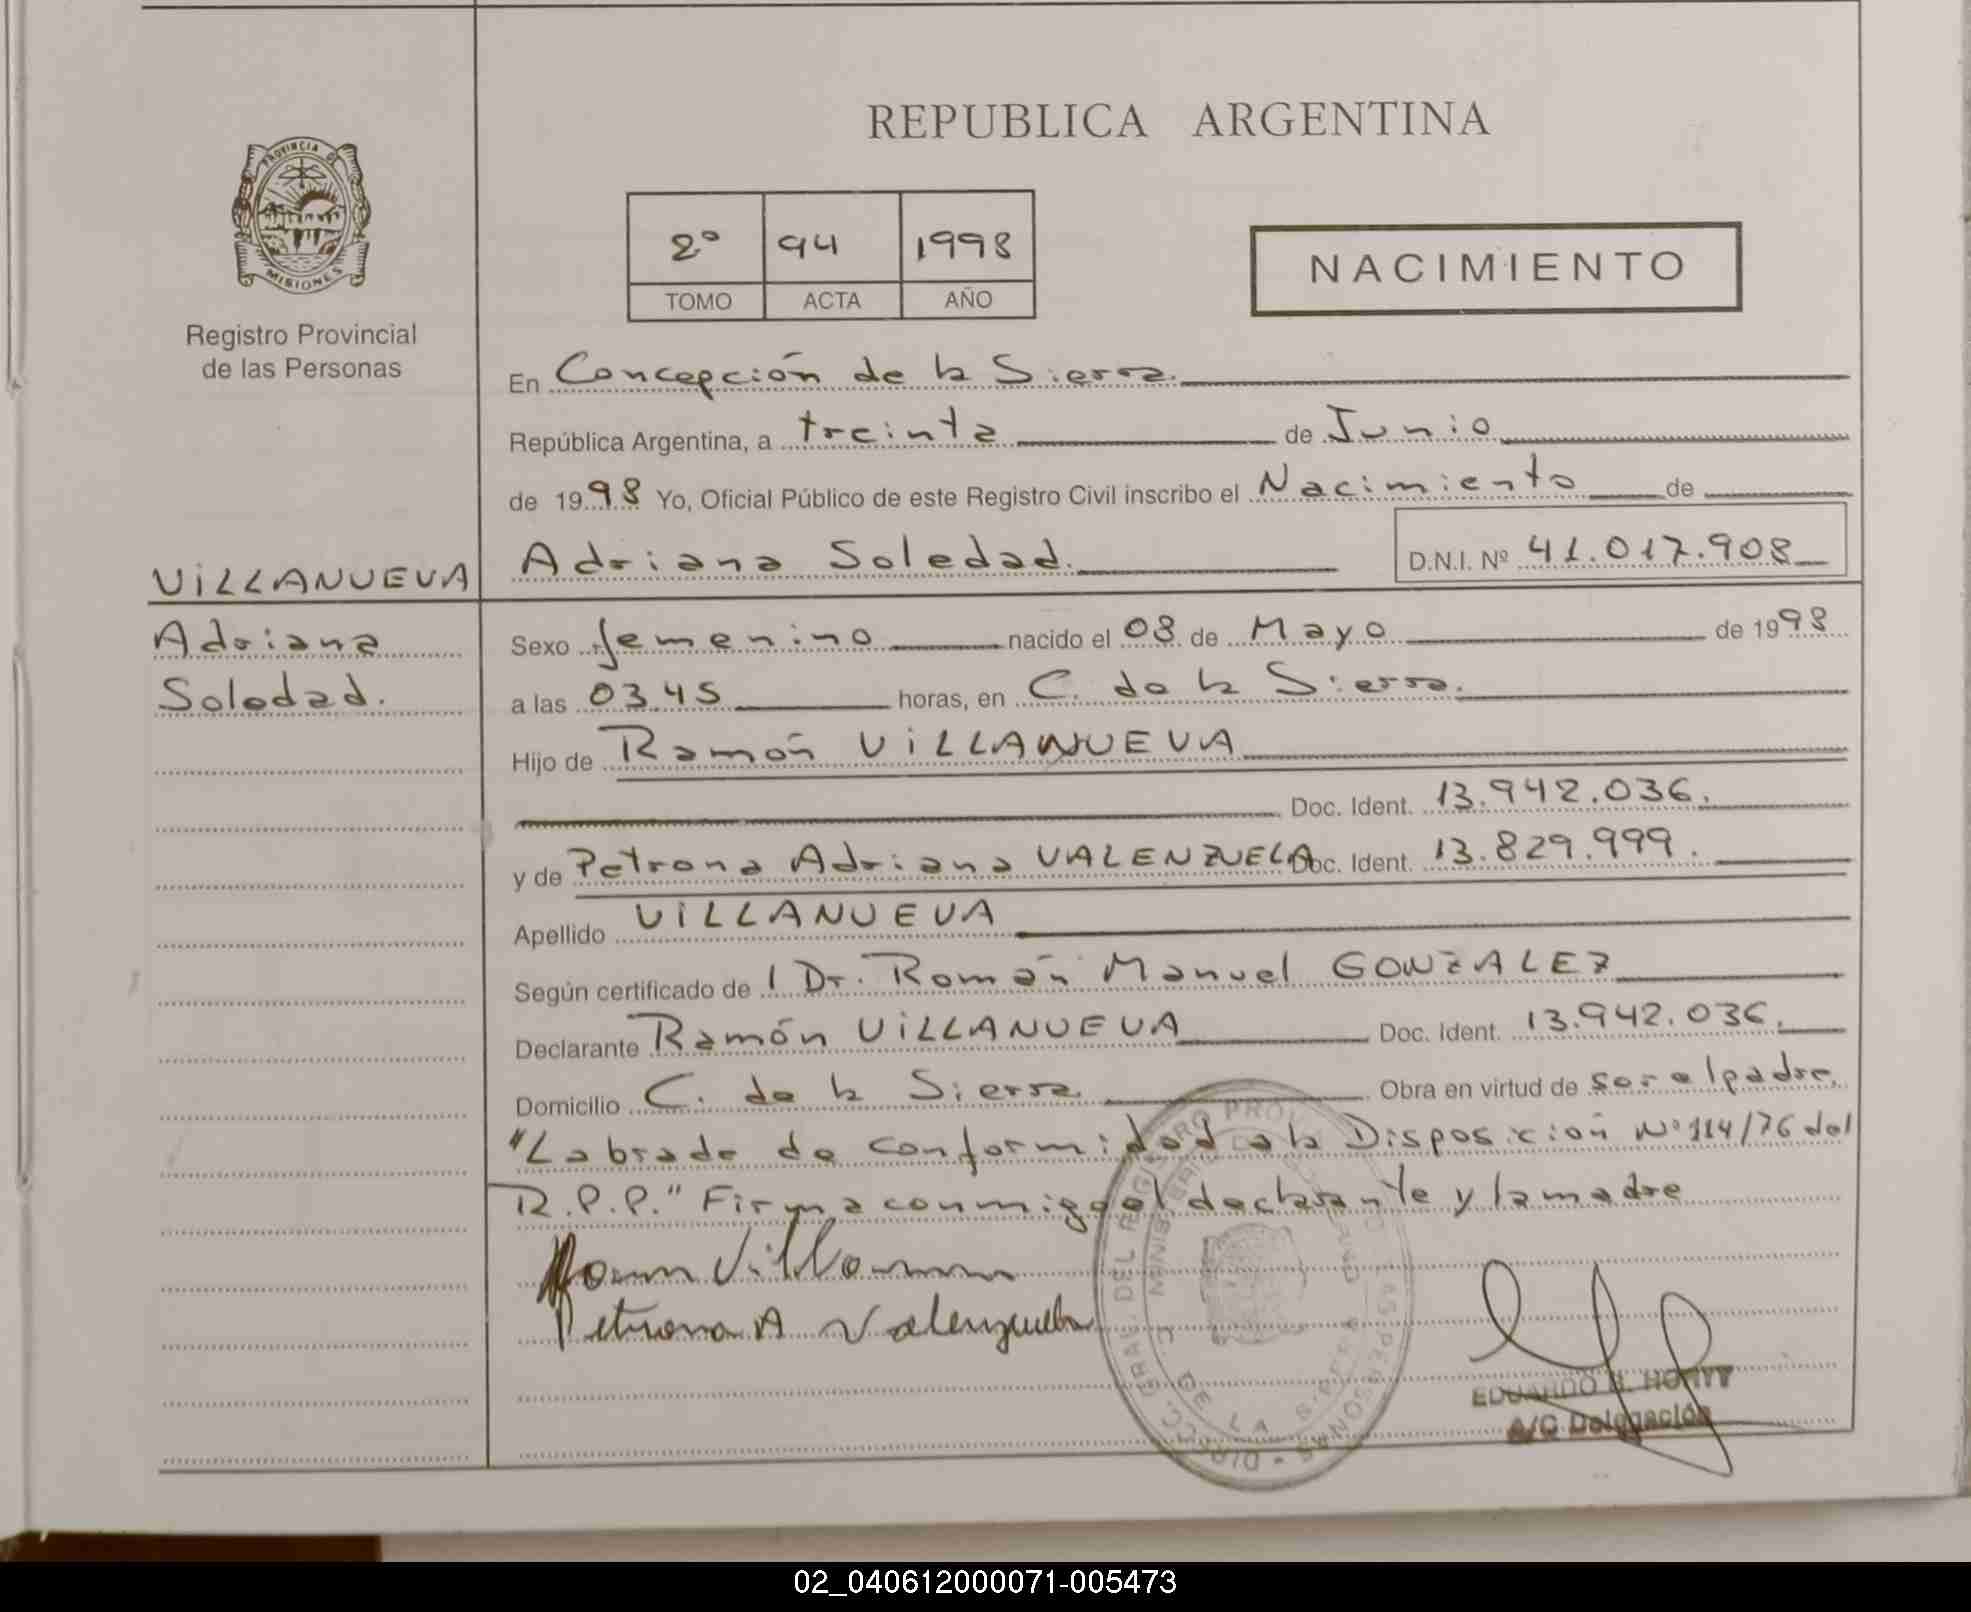 REPUBLICA ARGENTINA
PROVINCIA DE
MISIONES
Registro Provincial
de las Personas
2º 94 1998
TOMO ACTA AÑO
NACIMIENTO
En Concepción de la Sierra.
República Argentina, a treinta de Junio
de 1998 Yo, Oficial Público de este Registro Civil inscribo el Nacimiento de
VILLANUEVA Adriana Soledad. D.N.I. Nº 41.017.908
Adriana
Soledad.
Sexo femenino nacido el 08 de Mayo de 1998
a las 03.45 horas, en C. de la Sierra.
Hijo de Ramón VILLANUEVA
Doc. Ident. 13.942.036.
y de Petrona Adriana VALENZUELA Doc. Ident. 13.829.999.
Apellido VILLANUEVA
Según certificado de l Dr. Román Manuel GONZALEZ
Declarante Ramón VILLANUEVA Doc. Ident. 13.942.036.
Domicilio C. de la Sierra Obra en virtud de ser el padre.
"Labrada de conformidad a la Disposición Nº 114/76 del
R.P.P." Firma conmigo el declarante y la madre
Petrona A Valenzuela
EDUARDO
A/C Delegación
02_040612000071-005473